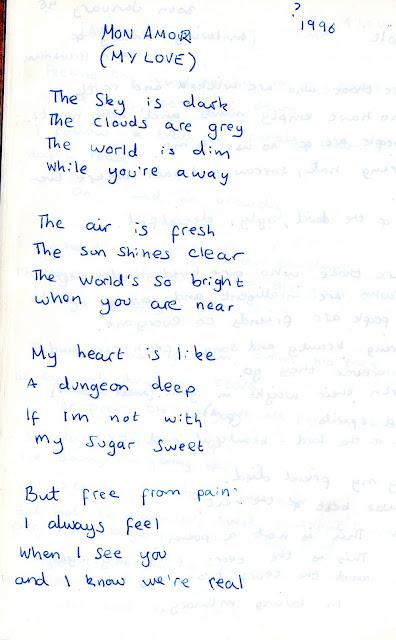 ?
1996
MON AMOR
(MY LOVE)
The Sky is dark
The clouds are grey
The world is dim
while you're away
The air is fresh
The sun shines clear
The world's so bright
when you are near
My heart is like
A dungeon deep
If Im not with
my sugar sweet
But free from pain
I always feel
when I see you
and I know we're real